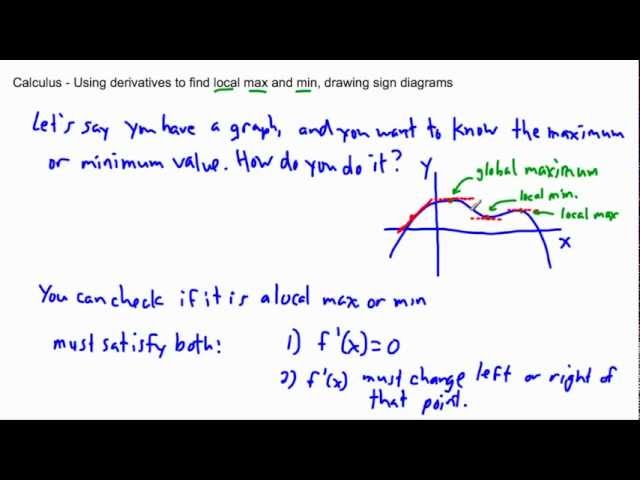 Calculus - Using derivatives to find local max and min, drawing sign diagrams
Let's say you have a graph, and you want to know the maximum
or minimum value. How do you do it?
Y
global maximum
local min.
local max
X
You can check if it is a local max or min
must satisfy both:
1) f'(x)=0
2) f'(x) must change left or right of
that point.